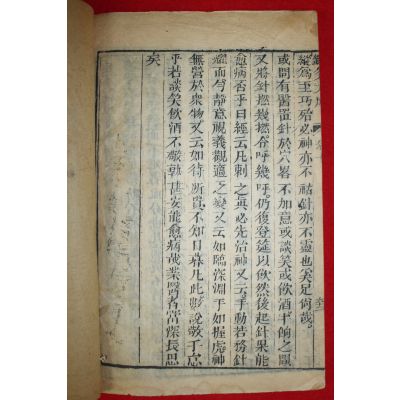 巫 王 巧 治 必 神 亦 不 祐 針 亦 不 靈 也 矣 足 何 哉
或問有醫置針於穴畧不加意或談笑或飲酒半餉之間
又將針撚幾撚令呼幾呼仍復登筵以飲然後起針果能
愈病否乎曰經云凡刺之眞必先治神又云手動若務針
耀而勻靜意視義觀適之變又云如臨深淵手如握虎神
無營於衆物又云如待所貴不知日暮凡此數說敬乎怠
乎若談笑飲酒不敬孰甚安能愈病哉業醫者當深長思
矣